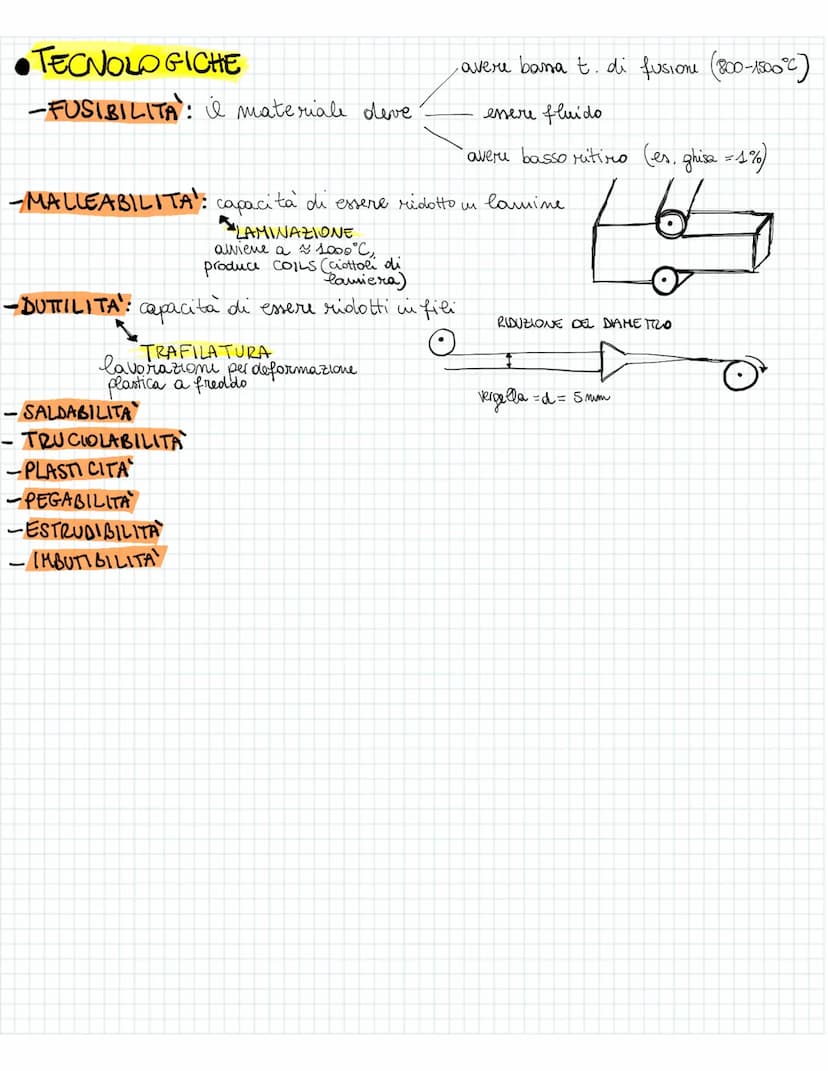 • TECNOLOGICHE
avere bassa t. di fusione (800-1500°C)
- FUSIBILITA': il materiale deve
essere fluido
avere basso ritiro (es. ghisa = 1%)
- MALLEABILITA': capacità di essere ridotto in lamine
LAMINAZIONE
avviene a ≈ 1000°C,
produce COILS (ciottoli di
lamiera)
- DUTTILITA': capacità di essere ridotti in fili
RIDUZIONE DEL DIAMETRO
TRAFILATURA
lavorazioni per deformazione
plastica a freddo
vergella = d = 5 mm
- SALDABILITA'
- TRUCIOLABILITA'
- PLASTICITA'
- PEGABILITA'
- ESTRUDIBILITA'
- IMBUTIBILITA'